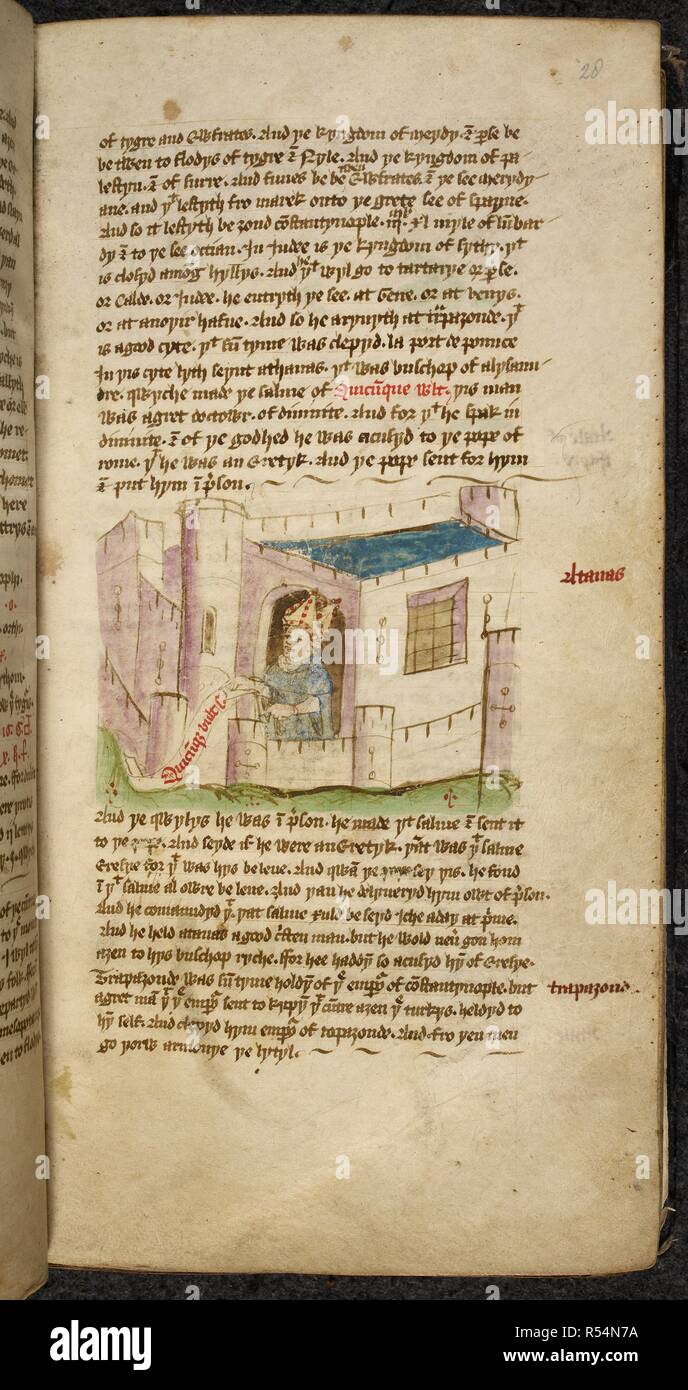 28
of tygre and Ewfrates. And ye kyngdom of meydy. & perse be
be twen to flodys of tygre & Nyle. And ye kyngdom of pa
lestyn. & of surre. And be Ewfrates. & ye see merydy
ane. and yt lestyth fro marek onto ye grete see of spayne.
And so it lestyth be zond cōstantynople. iij. xl myle of lūbar
dy & to ye see occian. In Indee is ye kyngdom of sythy. yt
is closyd amōg hyllys. And he yt wyl go to tartarye or perse.
or Calde. or Indee. he entryth ye see. at Gene. or at venys.
or at anoyir hafne. And so he aryuyth at trapazonde. yt
is a good cyte. yt sū tyme was clepyd. la port de pounce
In yis cyte lyth seynt athanas. yt was busschop of alysaun
dre. qwyche made ye salme of Quicūque wlt. yis man
was a gret doctowr. of diuinite. And for yt he spak in
diuinite. & of ye godhed he was acusyd to ye pope of
rome. yt he was an Eretyk. And ye pope sent for hym
& put hym ī pson.
Atanas
Quicūq vult sc
And ye qwylys he was ī pson. he made yt salme & sent it
to ye pope. And seyde if he were an Eretyk. yat was yt salme
Eresye for yt was hys beleue. And qwan ye pope sey yis. he fond
ī yt salme al owre be leue. And yan he delyueryd hym owt of pson.
And he comaundyd yt. yat salme xuld be seyd iche a day at pme.
And he held atanas a good cristen man. but he wold neuer gon hom
azen to hys busschop ryche. ffor hee haddyn so acusyd hym of Eresye.
Trapazonde was sū tyme holdyn of ye emper of cōstantynople. but
trapazond.
a gret man yt ye emper sent to kepyn ye cūtre azen ye turkys. heldyd to
hym self. And clepyd hym emper of trapazonde. And fro yen men
go yorw armonye ye lytyl.
alamy
Image ID: R54N7A
www.alamy.com